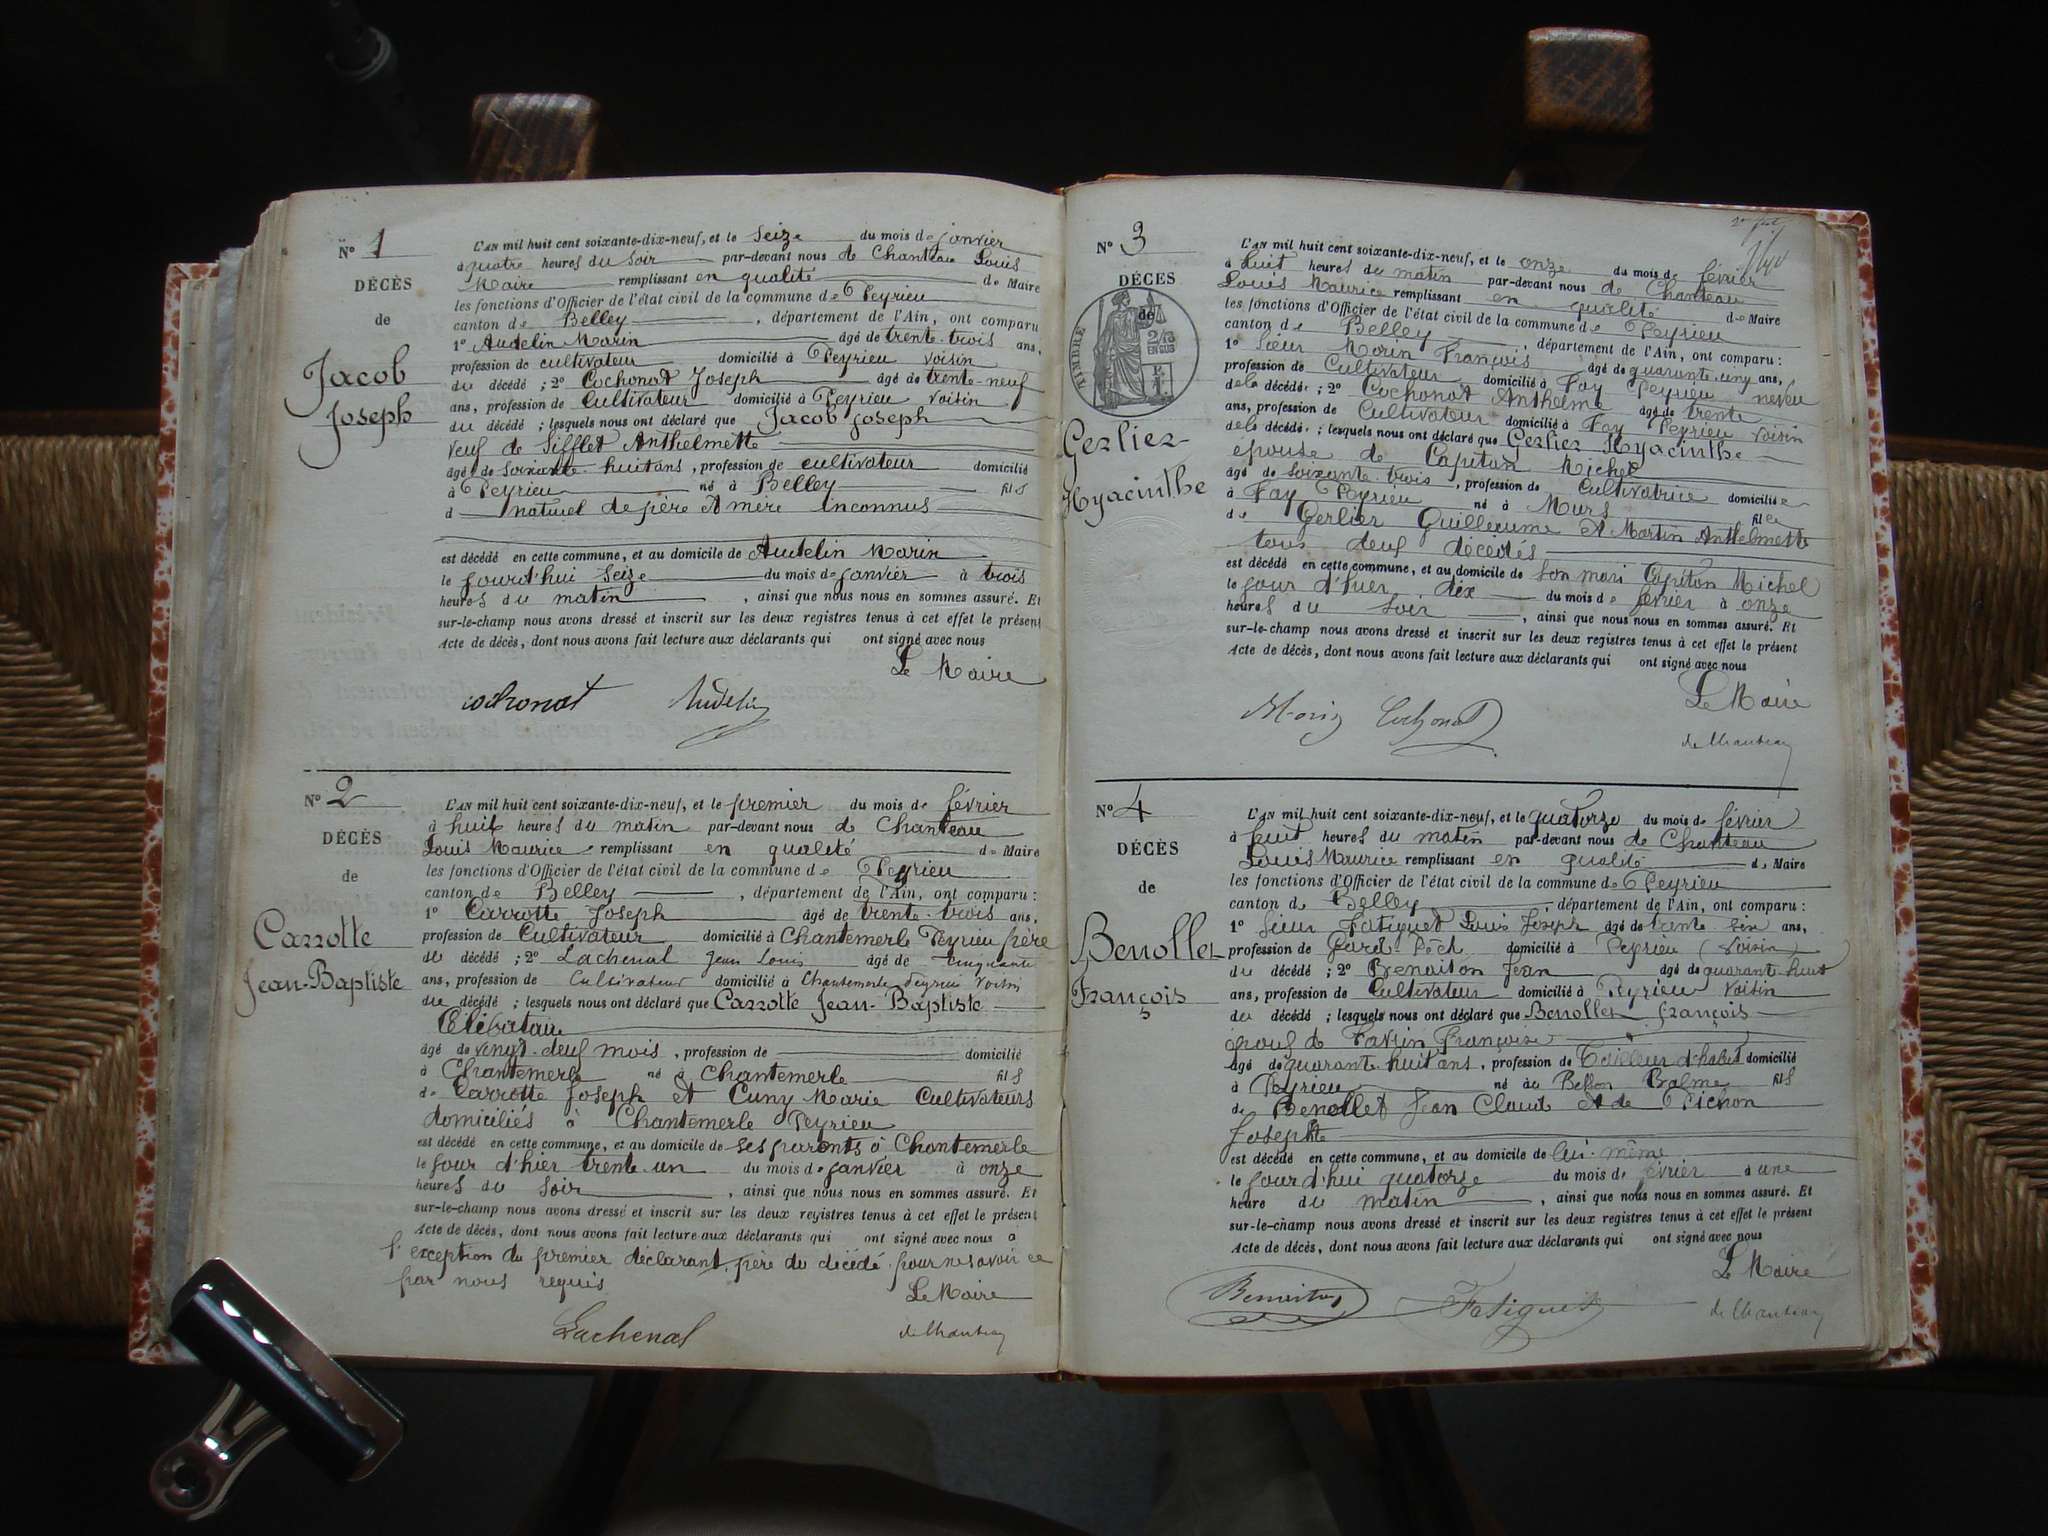 N° 1
DÉCÈS
de
Jacob
Joseph
L'AN mil huit cent soixante-dix-neuf, et le seize du mois de janvier
à quatre heures du soir par-devant nous de Chanteau Louis
Maire remplissant en qualité de Maire
les fonctions d'Officier de l'état civil de la commune de Peyrieu
canton de Belley, département de l'Ain, ont comparu
1° Audelin Marin âgé de trente-trois ans,
profession de cultivateur domicilié à Peyrieu voisin
du décédé ; 2° Cochonat Joseph âgé de trente-neuf
ans, profession de Cultivateur domicilié à Peyrieu voisin
du décédé ; lesquels nous ont déclaré que Jacob Joseph
veuf de Sifflet Anthelmette
âgé de soixante-huit ans, profession de cultivateur domicilié
à Peyrieu né à Belley fils
d naturel de père et mère inconnus
est décédé en cette commune, et au domicile de Audelin Marin
le jourd'hui seize du mois de janvier à trois
heures du matin, ainsi que nous nous en sommes assuré. Et
sur-le-champ nous avons dressé et inscrit sur les deux registres tenus à cet effet le présent
Acte de décès, dont nous avons fait lecture aux déclarants qui ont signé avec nous
Le Maire
cochonat Audelin
N° 2
DÉCÈS
de
Carrotte
Jean-Baptiste
L'AN mil huit cent soixante-dix-neuf, et le premier du mois de février
à huit heures du matin par-devant nous de Chanteau
Louis Maurice remplissant en qualité de Maire
les fonctions d'Officier de l'état civil de la commune de Peyrieu
canton de Belley, département de l'Ain, ont comparu :
1° Carrotte Joseph âgé de trente-trois ans,
profession de Cultivateur domicilié à Chantemerle Peyrieu père
du décédé ; 2° Lachenal Jean Louis âgé de cinquante
ans, profession de Cultivateur domicilié à Chantemerle Peyrieu voisin
du décédé ; lesquels nous ont déclaré que Carrotte Jean-Baptiste
Célibataire
âgé de vingt-deuf mois, profession de domicilié
à Chantemerle né à Chantemerle fils
de Carrotte Joseph et Cuny Marie Cultivateurs
domiciliés à Chantemerle Peyrieu
est décédé en cette commune, et au domicile de ses parents à Chantemerle
le jour d'hier trente-un du mois de janvier à onze
heures du soir, ainsi que nous nous en sommes assuré. Et
sur-le-champ nous avons dressé et inscrit sur les deux registres tenus à cet effet le présent
Acte de décès, dont nous avons fait lecture aux déclarants qui ont signé avec nous à
l'exception du premier déclarant, père du décédé pour ne savoir ce
par nous requis
Le Maire
Lachenal de Chanteau
N° 3
DÉCÈS
de
TIMBRE
2/10
EN SUS
Gerlier
Hyacinthe
L'AN mil huit cent soixante-dix-neuf, et le onze du mois de février
à huit heures du matin par-devant nous de Chanteau
Louis Maurice remplissant en qualité de Maire
les fonctions d'Officier de l'état civil de la commune de Peyrieu
canton de Belley, département de l'Ain, ont comparu :
1° Sieur Morin François âgé de quarante-un ans,
profession de Cultivateur domicilié à Fay Peyrieu neveu
de la décédée ; 2° Cochonat Anthelme âgé de trente
ans, profession de Cultivateur domicilié à Fay Peyrieu voisin
de la décédé ; lesquels nous ont déclaré que Gerlier Hyacinthe
épouse de Capitan Michel
âgé de soixante-trois, profession de Cultivatrice domiciliée
à Fay Peyrieu né à Murs fille
de Gerlier Guillaume et Martin Anthelmette
tous deuf décédés
est décédé en cette commune, et au domicile de son mari Capitan Michel
le jour d'hier dix du mois de février à onze
heures du soir, ainsi que nous nous en sommes assuré. Et
sur-le-champ nous avons dressé et inscrit sur les deux registres tenus à cet effet le présent
Acte de décès, dont nous avons fait lecture aux déclarants qui ont signé avec nous
Le Maire
Morin Cochonat
de Chanteau
N° 4
DÉCÈS
de
Benollet
François
L'AN mil huit cent soixante-dix-neuf, et le quatorze du mois de février
à huit heures du matin par-devant nous de Chanteau
Louis Maurice remplissant en qualité de Maire
les fonctions d'Officier de l'état civil de la commune de Peyrieu
canton de Belley, département de l'Ain, ont comparu :
1° Sieur Fatiguet Louis Joseph âgé de trente-six ans,
profession de domicilié à Peyrieu (Voisin)
du décédé ; 2° Benaiton Jean âgé de quarant-huit
ans, profession de Cultivateur domicilié à Peyrieu voisin
du décédé ; lesquels nous ont déclaré que Benollet François
époux de Favrin Françoise
âgé de quarante-huit ans, profession de Tailleur d'habit domicilié
à Peyrieu né au Balme fils
de Benollet Jean Claude et de Pichon
Josephte
est décédé en cette commune, et au domicile de lui-même
le jourd'hui quatorze du mois de février à une
heure du matin, ainsi que nous nous en sommes assuré. Et
sur-le-champ nous avons dressé et inscrit sur les deux registres tenus à cet effet le présent
Acte de décès, dont nous avons fait lecture aux déclarants qui ont signé avec nous
Le Maire
Benaiton Fatiguet de Chanteau